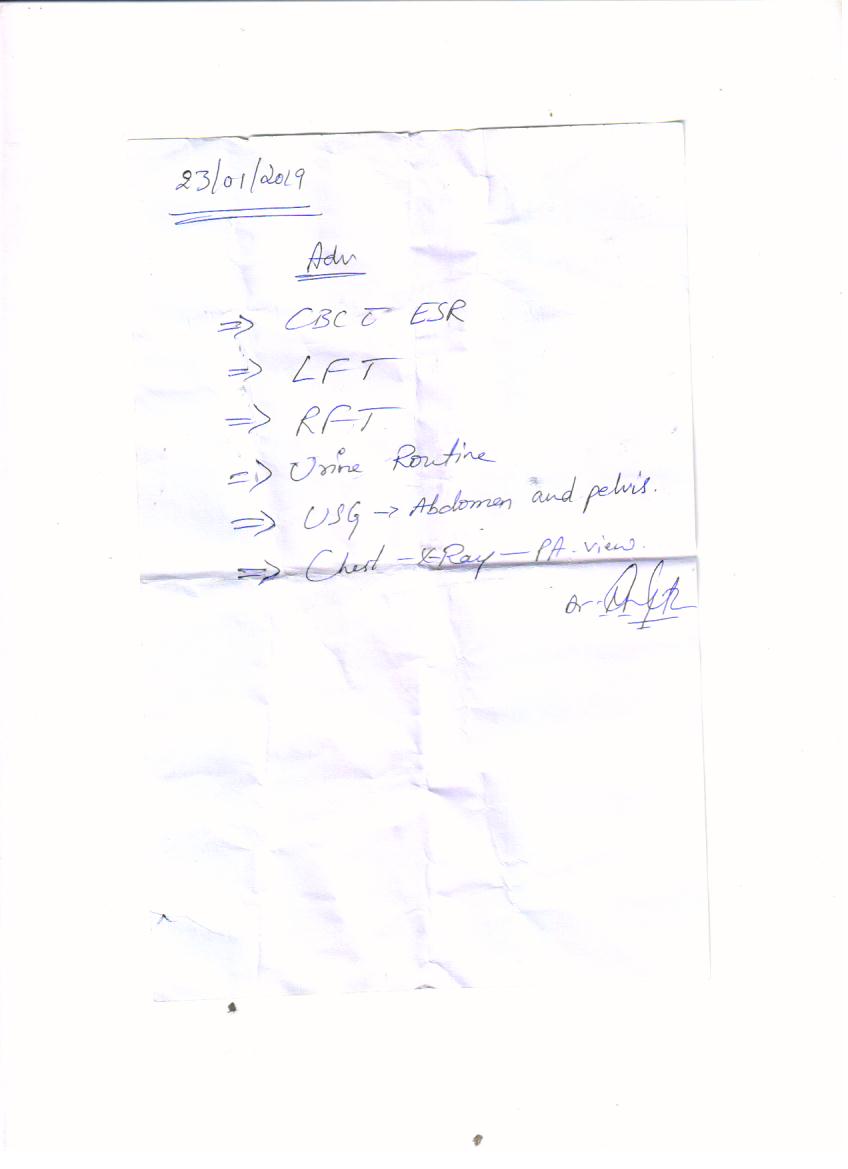 23/01/2019
Adv
⇒ CBC c̄ ESR
⇒ LFT
⇒ RFT
⇒ Urine Routine
⇒ USG → Abdomen and pelvis.
⇒ Chest - X-Ray - PA. view.
Dr.